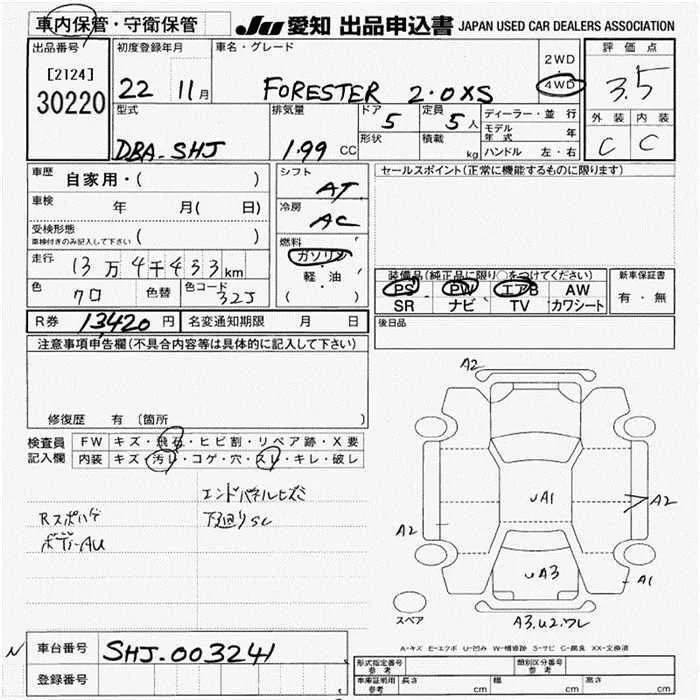 車内保管・守衛保管
JU 愛知 出品申込書 JAPAN USED CAR DEALERS ASSOCIATION
出品番号
[2124]
30220
初度登録年月
22 11月
車名・グレード
FORESTER 2.0XS
2WD
4WD
評価点
3.5
外装 内装
C C
型式
DBA-SHJ
排気量
1.99 CC
ドア
5
形状
定員
5人
積載
kg
ディーラー・並行
モデル年式 年
ハンドル 左・右
車歴 自家用・( )
車検 年 月(日)
受検形態
車検付きのみ記入して下さい ( )
走行 13万4千433km
色 クロ 色替 色コード 32J
シフト
AT
冷房
AC
燃料
ガソリン
軽・油
( )
セールスポイント(正常に機能するものに限ります)
装備品(純正品に限り○をつけてください)
PS PW エアB AW
SR ナビ TV カワシート
新車保証書
有・無
R券 13,420円 名変通知期限 月 日
後日品
注意事項申告欄(不具合内容等は具体的に記入して下さい)
修復歴 有 (箇所 )
検査員
記入欄
FW キズ・飛石・ヒビ割・リペア跡・X要
内装 キズ・汚レ・コゲ・穴・スレ・キレ・破レ
エンドパネルヒズミ
下廻りSC
ボデーAU
A2
UA1
A2
A2
UA3
A1
A3.U2.ワレ
スペア
A-キズ E-エクボ U-凹み W-補修跡 S-サビ C-腐食 XX-交換済
N
車台番号 SHJ-003241
登録番号
形式指定番号
参考
類別区分番号
参考
車庫証明用
参考
長さ cm 幅 cm 高さ cm